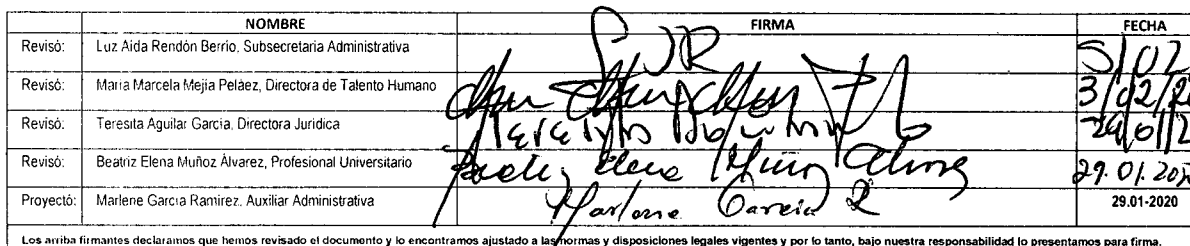 NOMBRE FIRMA FECHA
Revisó: Luz Aida Rendón Berrio, Subsecretaria Administrativa 5/02
Revisó: Maria Marcela Mejía Peláez, Directora de Talento Humano 3/02/20
Revisó: Teresita Aguilar García, Directora Jurídica
Revisó: Beatriz Elena Muñoz Álvarez, Profesional Universitario Elena 29.01.2020
Proyectó: Marlene García Ramírez, Auxiliar Administrativa Marlene Garcia R 29.01-2020
Los arriba firmantes declaramos que hemos revisado el documento y lo encontramos ajustado a las normas y disposiciones legales vigentes y por lo tanto, bajo nuestra responsabilidad lo presentamos para firma.